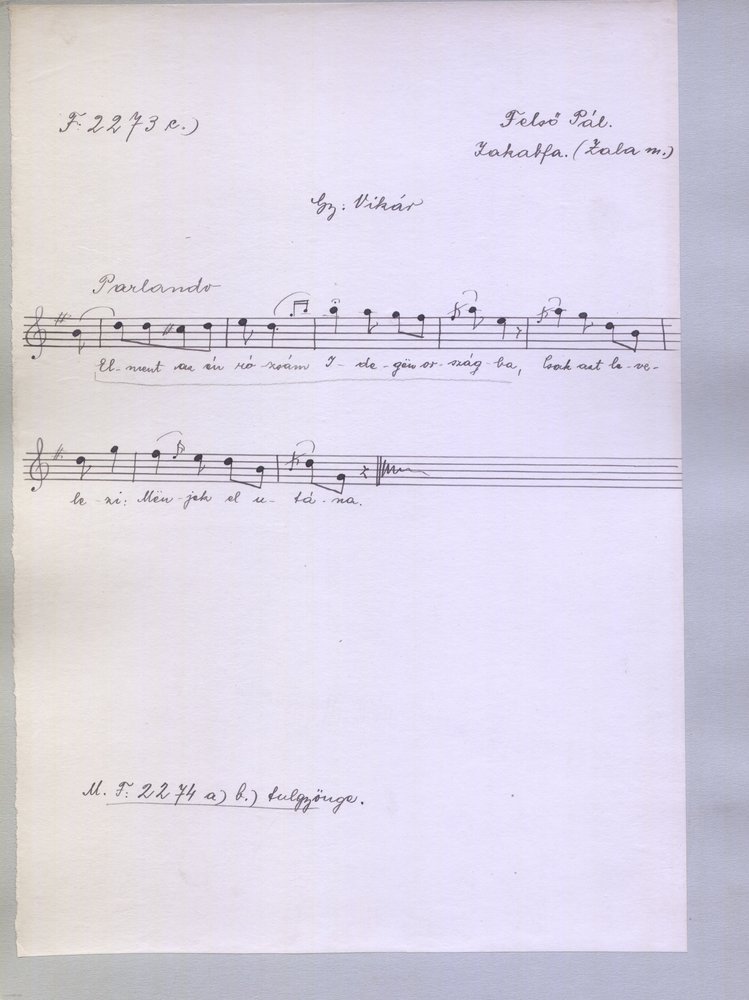 F. 2273 c.)
Felső Pál.
Jakabfa. (Zala m.)
Gy: Vikár
Parlando
El-ment az én ró-zsám I-de-gën or-szág-ba, Csak azt le-ve-
le-zi: Mën-jek el u-tá-na.
M. F. 2274 a) b.) tulgyönge.